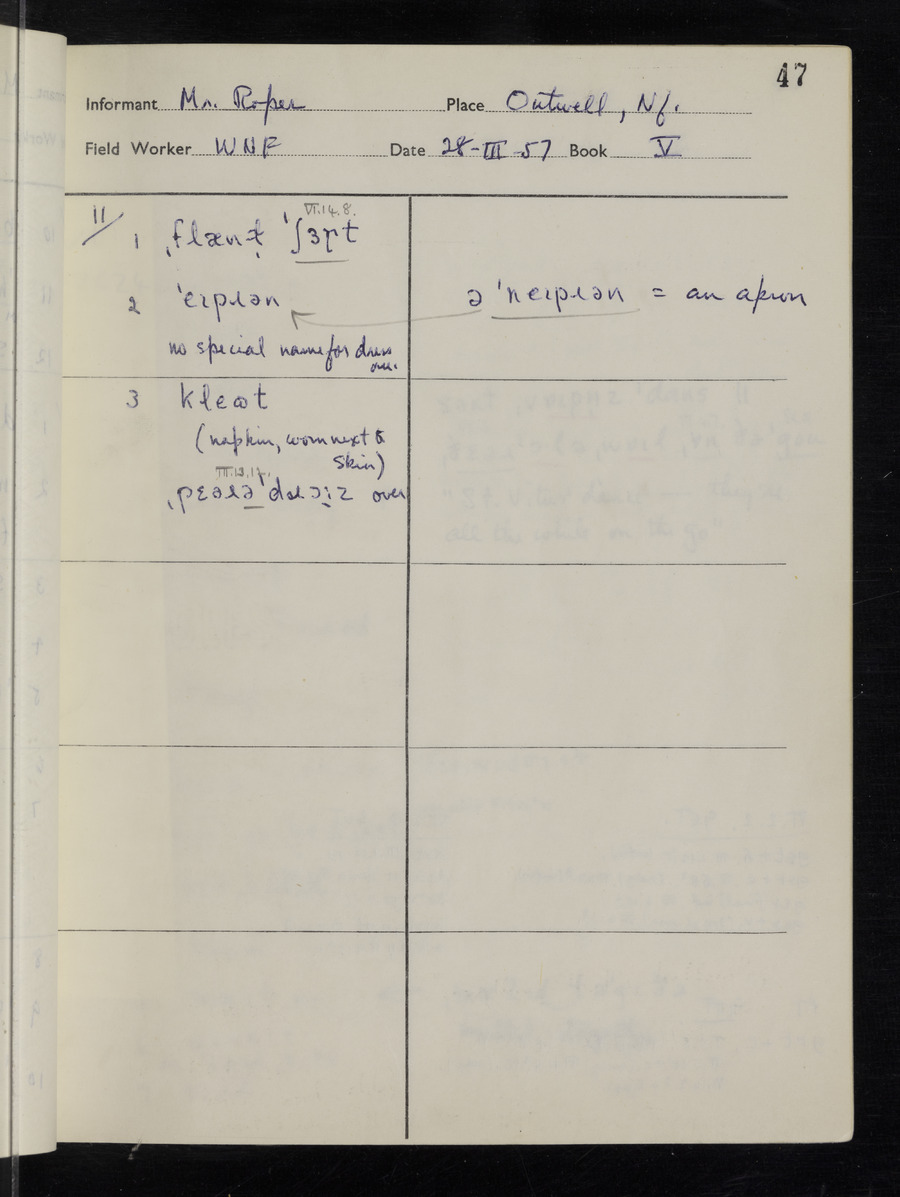 47
Informant Mr. Roper Place Outwell, Nf.
Field Worker WNF Date 28-III-57 Book V
VI.14.8.
11/ 1 ˌflænɫ̩ ˈʃɜɽt
2 ˈeɪpɹən ə ˈneɪpɹən = an apron
no special name for dress
one.
3 klɒʊt
(napkin, worn next to
skin)
ˌpɛəɹə ˈdɹɔːz over